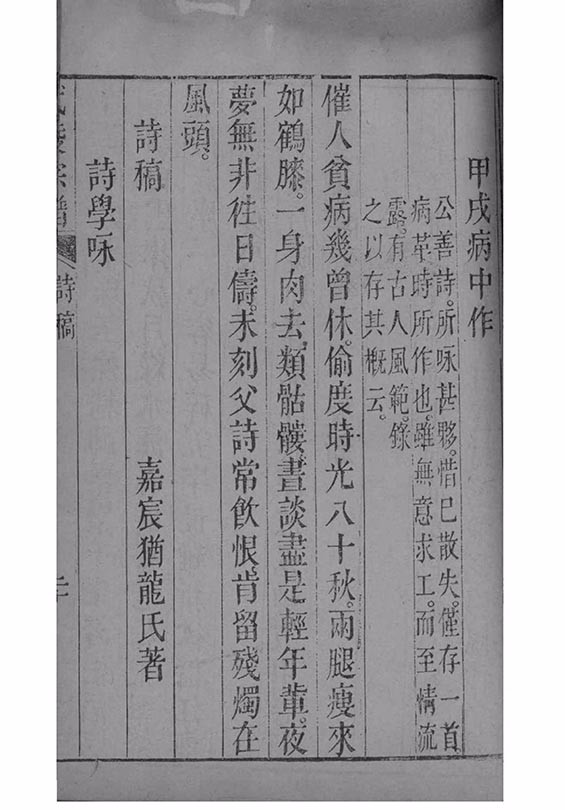 甲戌病中作
公善詩。所咏甚夥。惜已散失。僅存一首
病革時所作也。雖無意求工。而至情流
露。有古人風範。錄
之以存其概云。
催人貧病幾曾休。偷度時光八十秋。兩腿瘦來
如鶴膝。一身肉去類骷髏。晝談盡是輕年輩。夜
夢無非往日儔。未刻父詩常飲恨。肯留殘燭在
風頭。
詩稿
嘉宸猶龍氏著
詩學咏
宗譜
詩稿